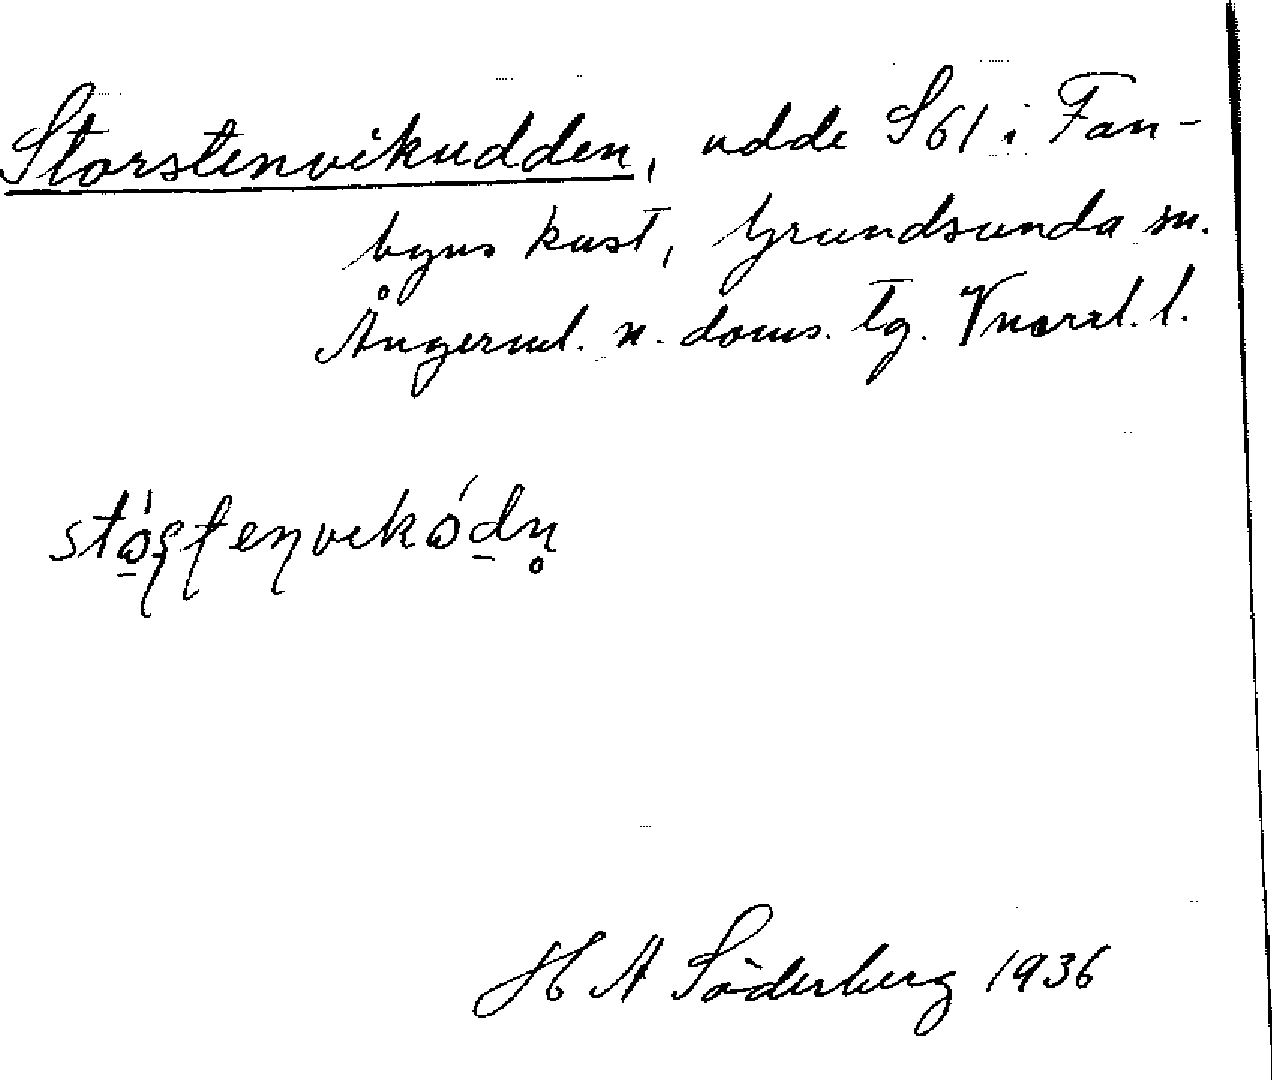 Storstenvikudden, udde S61 i Fan-
byns kust, Grundsunda sn.
Ångerml. n. doms. tg. Vnorrl. l.
H A Söderberg 1936